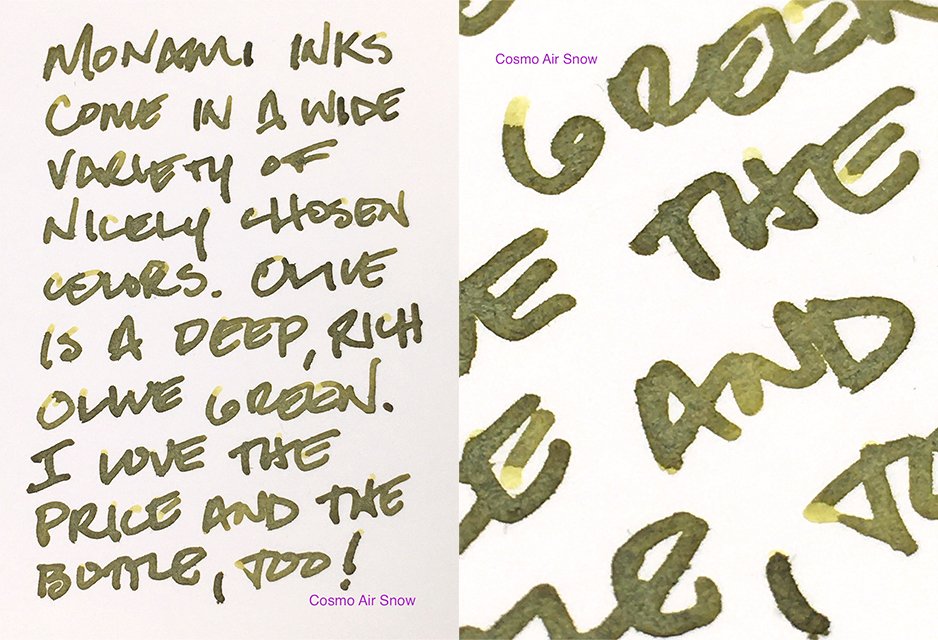 MONAMI INKS
COME IN A WIDE
VARIETY OF
NICELY CHOSEN
COLORS. OLIVE
IS A DEEP, RICH
OLIVE GREEN.
I LOVE THE
PRICE AND THE
BOTTLE, TOO!
Cosmo Air Snow
Cosmo Air Snow
GREEN
E THE
E AND